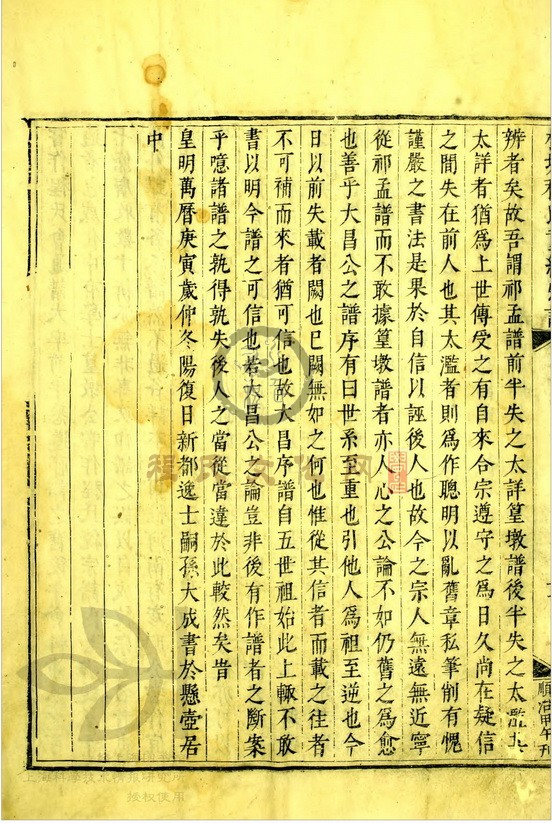 辨者矣故吾謂祁孟譜前半失之太詳篁墩譜後半失之太濫其
太詳者猶為上世傳受之有自來合宗遵守之為日久尚在疑信
之間失在前人也其太濫者則為作聰明以亂舊章私筆削有愧
謹嚴之書法是果於自信以誣後人也故今之宗人無遠無近寧
從祁孟譜而不敢據篁墩譜者亦人心之公論不如仍舊之為愈
也善乎大昌公之譜序有曰世系至重也引他人為祖至逆也今
日以前失載者闕也已闕無如之何也惟從其信者而載之往者
不可補而來者猶可信也故大昌序譜自五世祖始此上輙不敢
書以明今譜之可信也若大昌公之論豈非後有作譜者之斷案
乎噫諸譜之孰得孰失後人之當從當違於此較然矣旹
皇明萬曆庚寅歲仲冬陽復日新都逸士嗣孫大成書於懸壺居
中
順治甲午刊
程氏文化网
授权使用